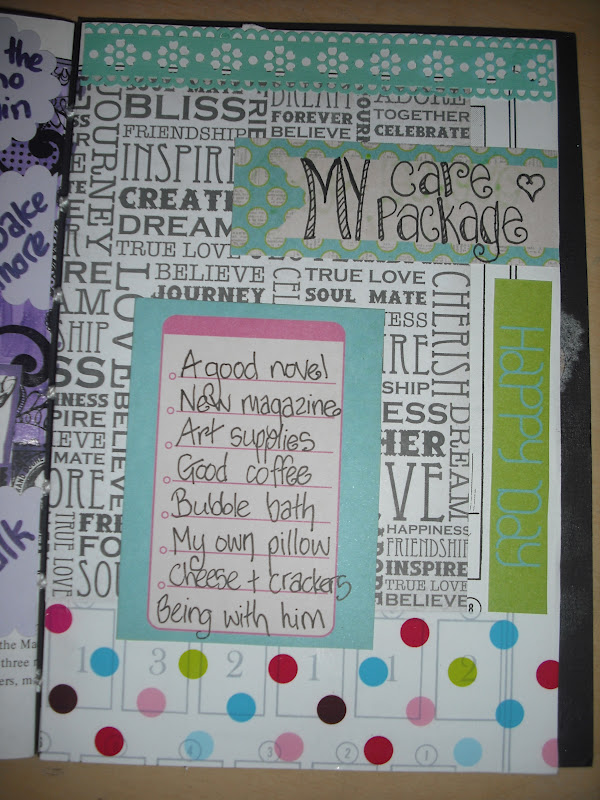 the
no
in
bake
more
alk
the Ma
three
ers, m
SOUL MATE
DREAM
ADORE
BLISS
FOREVER
TOGETHER
FRIENDSHIP
BELIEVE
CELEBRATE
JOURNEY
INSPIRE
CREATE
DREAM
TRUE LOVE
MY care
Package
BELIEVE
TRUE LOVE
JOURNEY
SOUL MATE
LOVE
CHERISH
DREAM
Happy Day
A good novel
New magazine
Art supplies
Good coffee
Bubble bath
My own pillow
Cheese + crackers
Being with him
BELIEVE
TRUE LOVE
HAPPINESS
FRIENDSHIP
INSPIRE
TRUE LOVE
BELIEVE
8
1
3
2
1
2
4
3
2
1